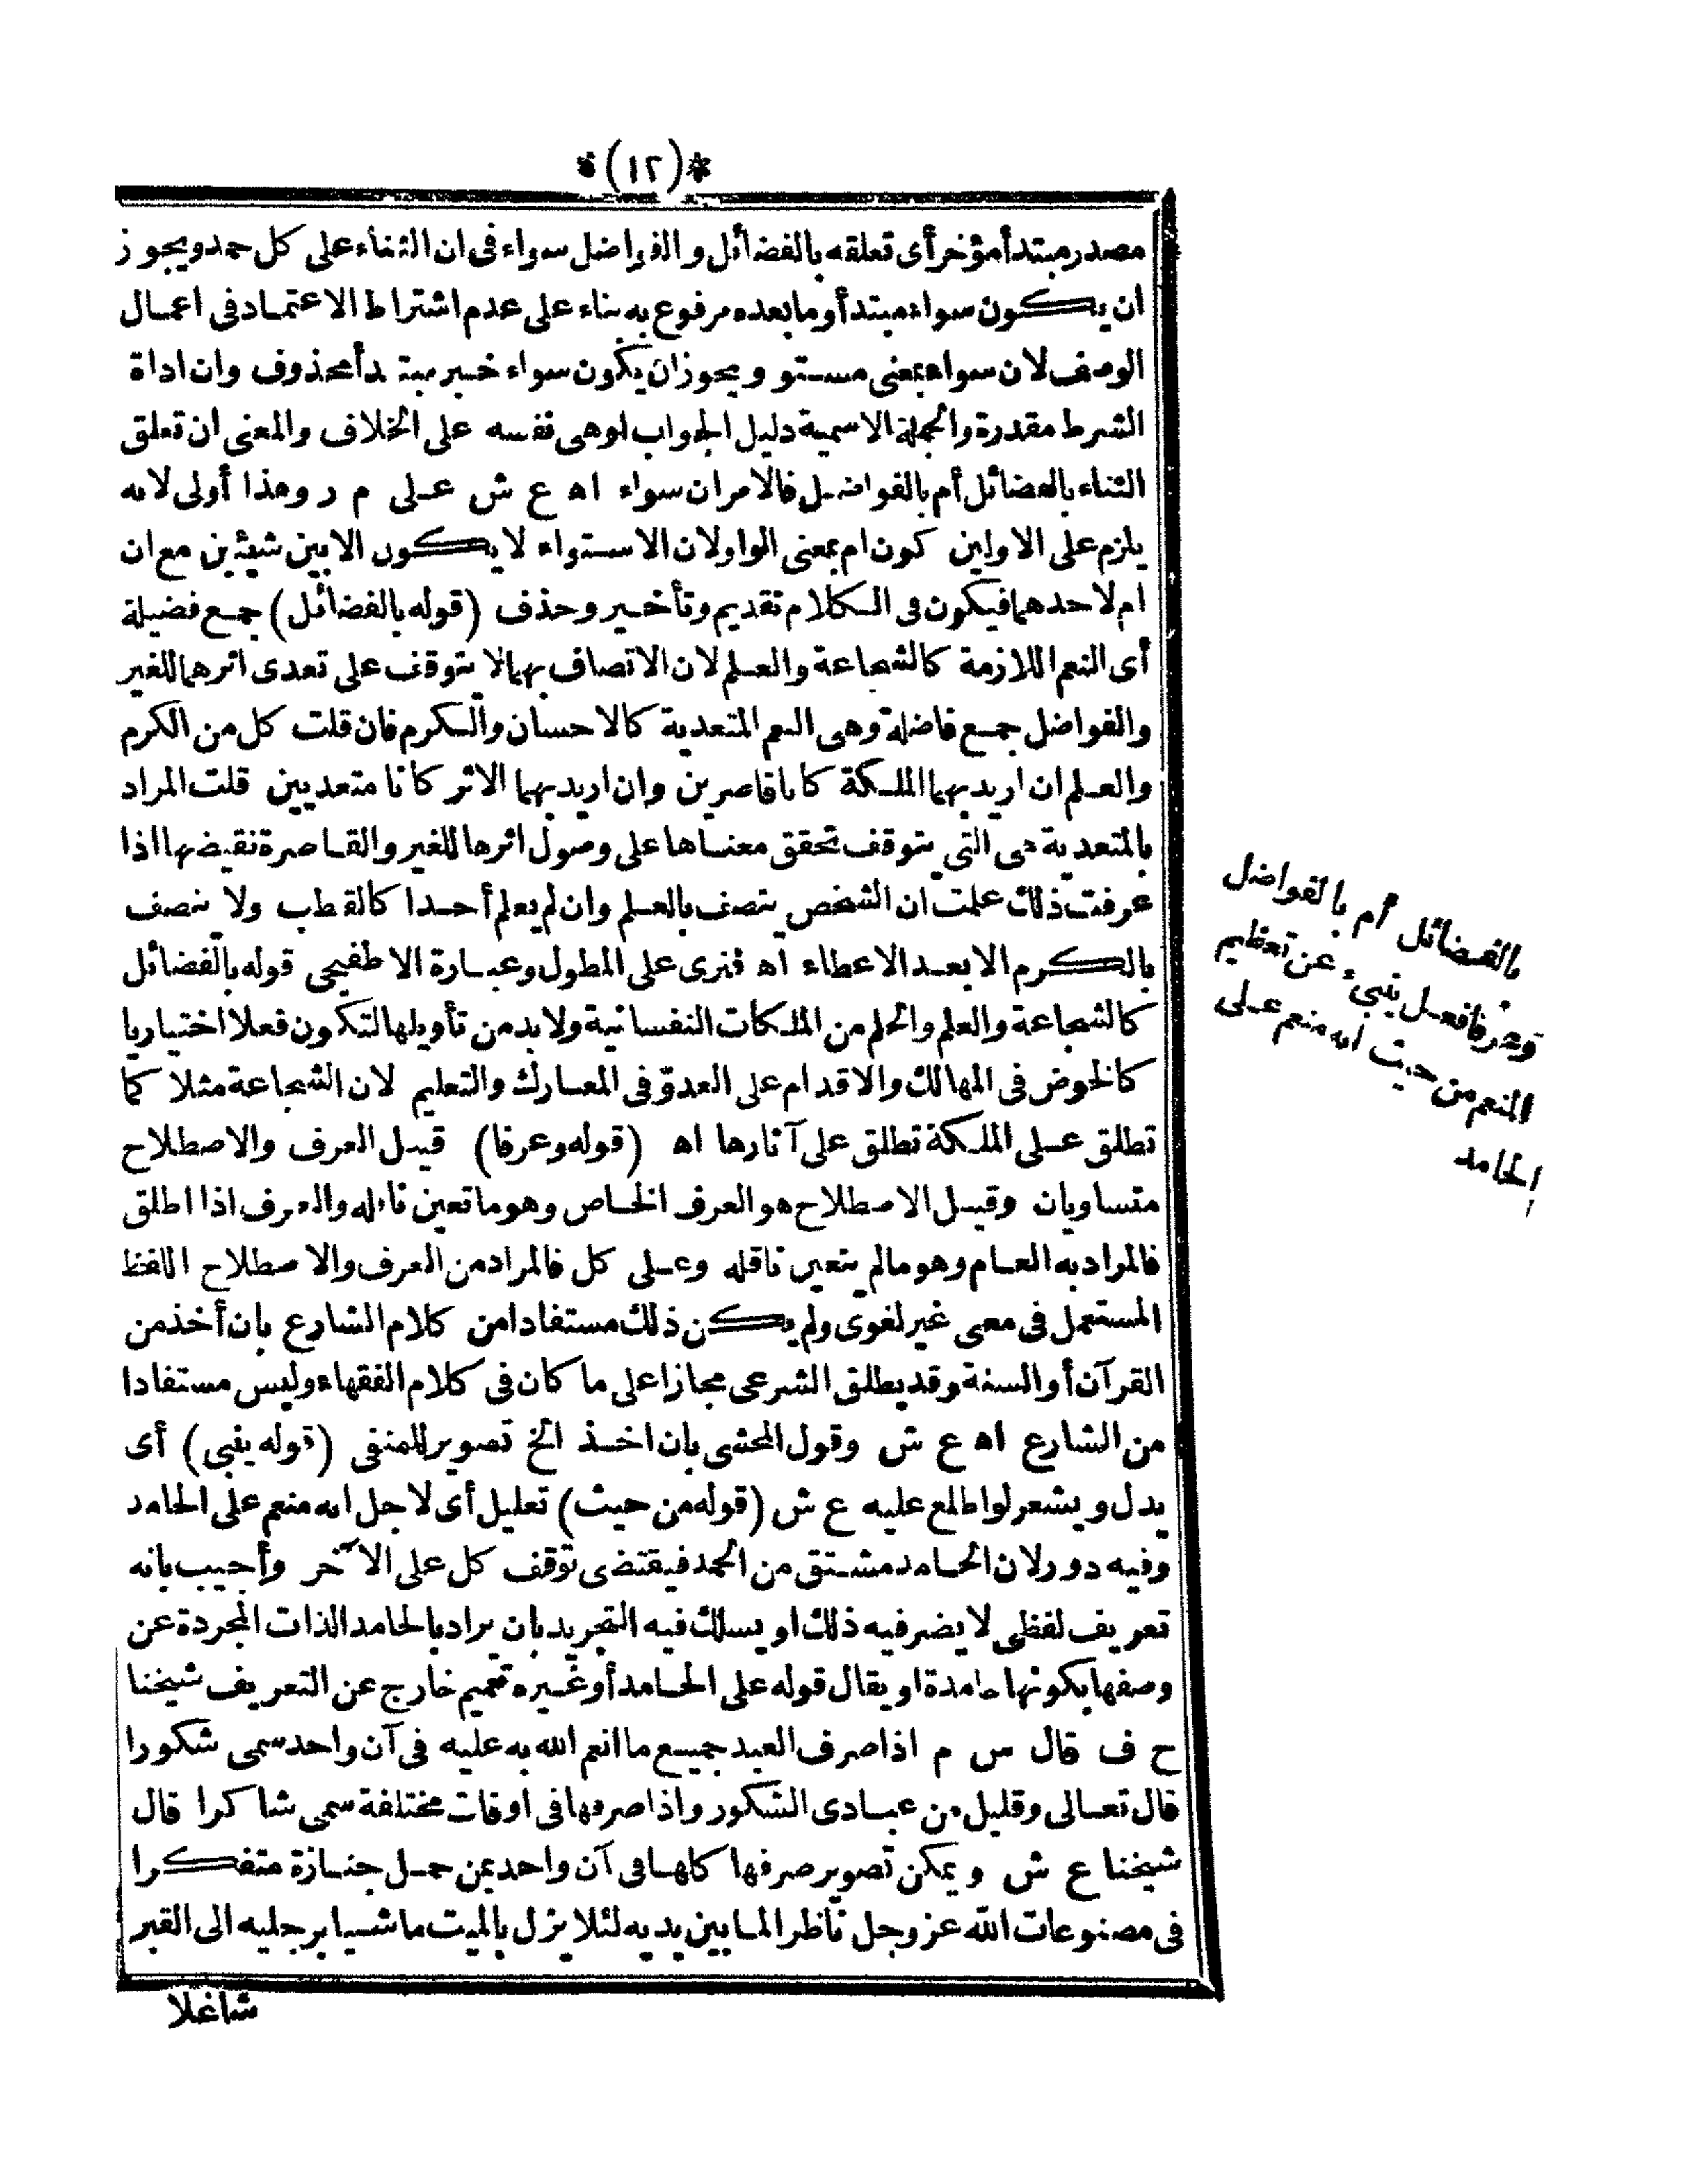 *(١٢)*
مصدر مبتدأ مؤخر أى تعلقه بالفضائل والفواضل سواء فى ان الثناء على كل حمد ويجوز
ان يكون سواء مبتدأ وما بعده مرفوع به بناء على عدم اشتراط الاعتماد فى اعمال
الوصف لان سواء بمعنى مستو ويجوز ان يكون سواء خبر مبتدأ محذوف وان اداة
الشرط مقدرة والجملة الاسمية دليل الجواب او هى نفسه على الخلاف والمعنى ان تعلق
الثناء بالفضائل أم بالفواضل فالامران سواء اه ع ش على م ر وهذا أولى لانه
يلزم على الاولين كون ام بمعنى الواو لان الاستواء لا يكون الا بين شيئين مع ان
ام لاحدهما فيكون فى الكلام تقديم وتأخير وحذف (قوله بالفضائل) جمع فضيلة
أى النعم اللازمة كالشجاعة والعلم لان الاتصاف بهما لا يتوقف على تعدى اثرهما للغير
والفواضل جمع فاضلة وهى النعم المتعدية كالاحسان والكرم فان قلت كل من الكرم
والعلم ان اريد بهما الملكة كانا قاصرين وان اريد بهما الاثر كانا متعديين قلت المراد
بالمتعدية هى التى يتوقف تحقق معناها على وصول اثرها للغير والقاصرة نقيضها اذا
عرفت ذلك علمت ان الشخص يتصف بالعلم وان لم يعلم أحدا كالقطب ولا يتصف
بالكرم الا بعد الاعطاء اه فنرى على المطول وعبارة الاطفيحى قوله بالفضائل
كالشجاعة والعلم والحلم من الملكات النفسانية ولا بد من تأويلها لتكون فعلا اختياريا
كالخوض فى المهالك والاقدام على العدوّ فى المعارك والتعليم لان الشجاعة مثلا كما
تطلق على الملكة تطلق على آثارها اه (قوله وعرفا) قيل العرف والاصطلاح
متساويان وقيل الاصطلاح هو العرف الخاص وهو ما تعين ناقله والعرف اذا اطلق
فالمراد به العام وهو ما لم يتعين ناقله وعلى كل فالمراد من العرف والاصطلاح اللفظ
المستعمل فى معنى غير لغوى ولم يكن ذلك مستفادا من كلام الشارع بان أخذ من
القرآن أو السنة وقد يطلق الشرعى مجازا على ما كان فى كلام الفقهاء وليس مستفادا
من الشارع اه ع ش وقول المحشى بان اخذ الخ تصوير للمنفى (قوله ينبى) أى
يدل ويشعر لو اطلع عليه ع ش (قوله من حيث) تعليل أى لاجل انه منعم على الحامد
وفيه دور لان الحامد مشتق من الحمد فيقتضى توقف كل على الآخر وأجيب بانه
تعريف لفظى لا يضر فيه ذلك او يسلك فيه التجريد بان يراد بالحامد الذات المجردة عن
وصفها بكونها حامدة او يقال قوله على الحامد أو غيره تتميم خارج عن التعريف شيخنا
ح ف قال س م اذا صرف العبد جميع ما انعم الله به عليه فى آن واحد سمى شكورا
قال تعالى وقليل من عبادى الشكور واذا صرفها فى اوقات مختلفة سمى شاكرا قال
شيخنا ع ش ويمكن تصوير صرفها كلها فى آن واحد بمن حمل جنازة متفكرا
فى مصنوعات الله عز وجل ناظرا لما بين يديه لئلا يزل بالميت ماشيا برجليه الى القبر
شاغلا
بالفضائل أم بالفواضل
وعرفا فعل ينبىء عن تعظيم
المنعم من حيث انه منعم على
الحامد